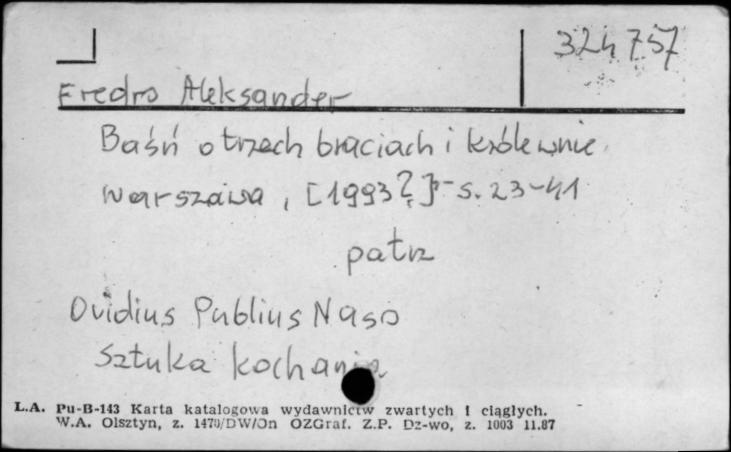 324757
Fredro Aleksander
Baśń o trzech braciach i królewnie.
Warszawa, [1993?] - s. 23-41
patrz
Ovidius Publius Naso
Sztuka kochania
L.A. Pu-B-143 Karta katalogowa wydawnictw zwartych i ciągłych.
W.A. Olsztyn, z. 1470/DW/On OZGraf. Z.P. Dz-wo, z. 1003 11.87